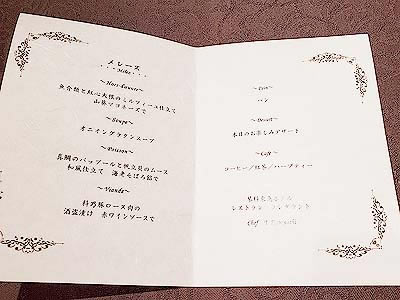 メレーズ
~Hors-d'œuvre~
魚介類と紅心大根のミルフィーユ仕立て
山葵マヨネーズで
~Soupe~
オニオングラタンスープ
~Poisson~
真鯛のパッソールと帆立貝のムース
和風仕立て 海老そぼろ餡で
~Viande~
豚ロース肉の
酒盗漬け 赤ワインソースで
~Pain~
パン
~Dessert~
本日のお楽しみデザート
~Café~
コーヒー/紅茶/ハーブティー
レストラン
Chef